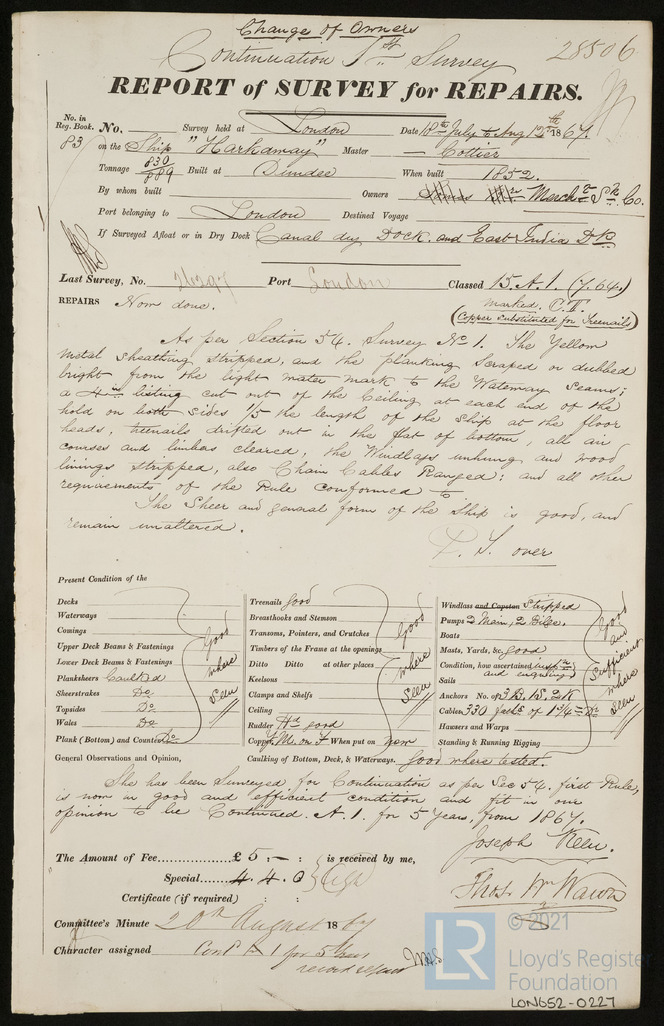 Change of Owners
Continuation 1st Survey 28506
REPORT of SURVEY for REPAIRS.
No. in Reg. Book. No. Survey held at London Date 18th July to Aug 12th 1867.
83 on the Ship "Harkaway" Master Cottier
Tonnage 830/889 Built at Dundee When built 1852.
By whom built Owners Merch.ts Sh. Co.
Port belonging to London Destined Voyage
If Surveyed Afloat or in Dry Dock Canal dry Dock. and East India Dk
Last Survey, No. 26297 Port London Classed 15. A. 1. (7.64.)
marked, C.T.
REPAIRS Now done. (Copper substituted for Treenails)
As per Section 54. Survey No 1. The Yellow
metal sheathing stripped, and the planking scraped or dubbed
bright from the light water mark to the Waterway seams;
a 4 in listing cut out of the Ceiling at each end of the
hold on both sides 1/5 the length of the ship at the floor
heads, treenails drifted out in the flat of bottom, all air
courses and limbers cleared, the Windlass unhung and wood
linings stripped, also Chain Cables Ranged; and all other
requirements of the Rule conformed to
The Sheer and general form of the Ship is good, and
remain unaltered.
P. T. over
Present Condition of the
Decks
Waterways
Comings
Upper Deck Beams & Fastenings
Lower Deck Beams & Fastenings
Planksheers Caulked
Sheerstrakes Do
Topsides Do
Wales Do
Plank (Bottom) and Counter Do
Good where Seen
Treenails Good
Breasthooks and Stemson
Transoms, Pointers, and Crutches
Timbers of the Frame at the openings
Ditto Ditto at other places
Keelsons
Clamps and Shelfs
Ceiling
Rudder Hd good
Copper Y.M. on F When put on now
Caulking of Bottom, Deck, & Waterways. Good where tested.
Good where Seen
Windlass and Capstan Stripped
Pumps 2 Main, 2 Bilge.
Boats
Masts, Yards, &c. Good
Condition, how ascertained insp.n and enquiring
Sails
Anchors No. of 3 B. 1 S. 2 K
Cables 330 faths of 1 3/4 in Do
Hawsers and Warps
Standing & Running Rigging
Good and Sufficient where Seen
General Observations and Opinion,
She has been Surveyed for Continuation as per Sec 54. first Rule,
is now in good and efficient condition and fit in our
opinion to be Continued. A. 1. for 5 Years, from 1867.
Joseph Keen.
The Amount of Fee £5 : - : is received by me,
Special 4. 4. 0
Certificate (if required) : :
Thos. Wm Wawn
Committee's Minute 20th August 1867
Character assigned Cont A 1 for 5 Years
© 2021
LR
Lloyd's Register
Foundation
LON652-0227